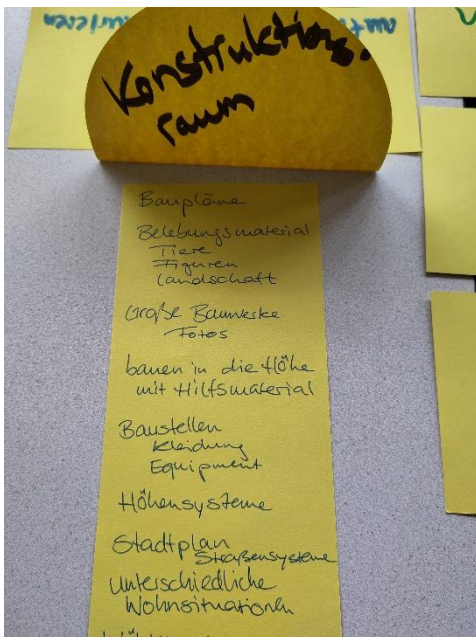 Konstruktions-
raum
Baupläne
Belebungsmaterial
Tiere
Figuren
Landschaft
Große Bauwerke
Fotos
bauen in die Höhe
mit Hilfsmaterial
Baustellen
Kleidung
Equipment
Höhensysteme
Stadtplan
Straßensysteme
unterschiedliche
Wohnsituationen